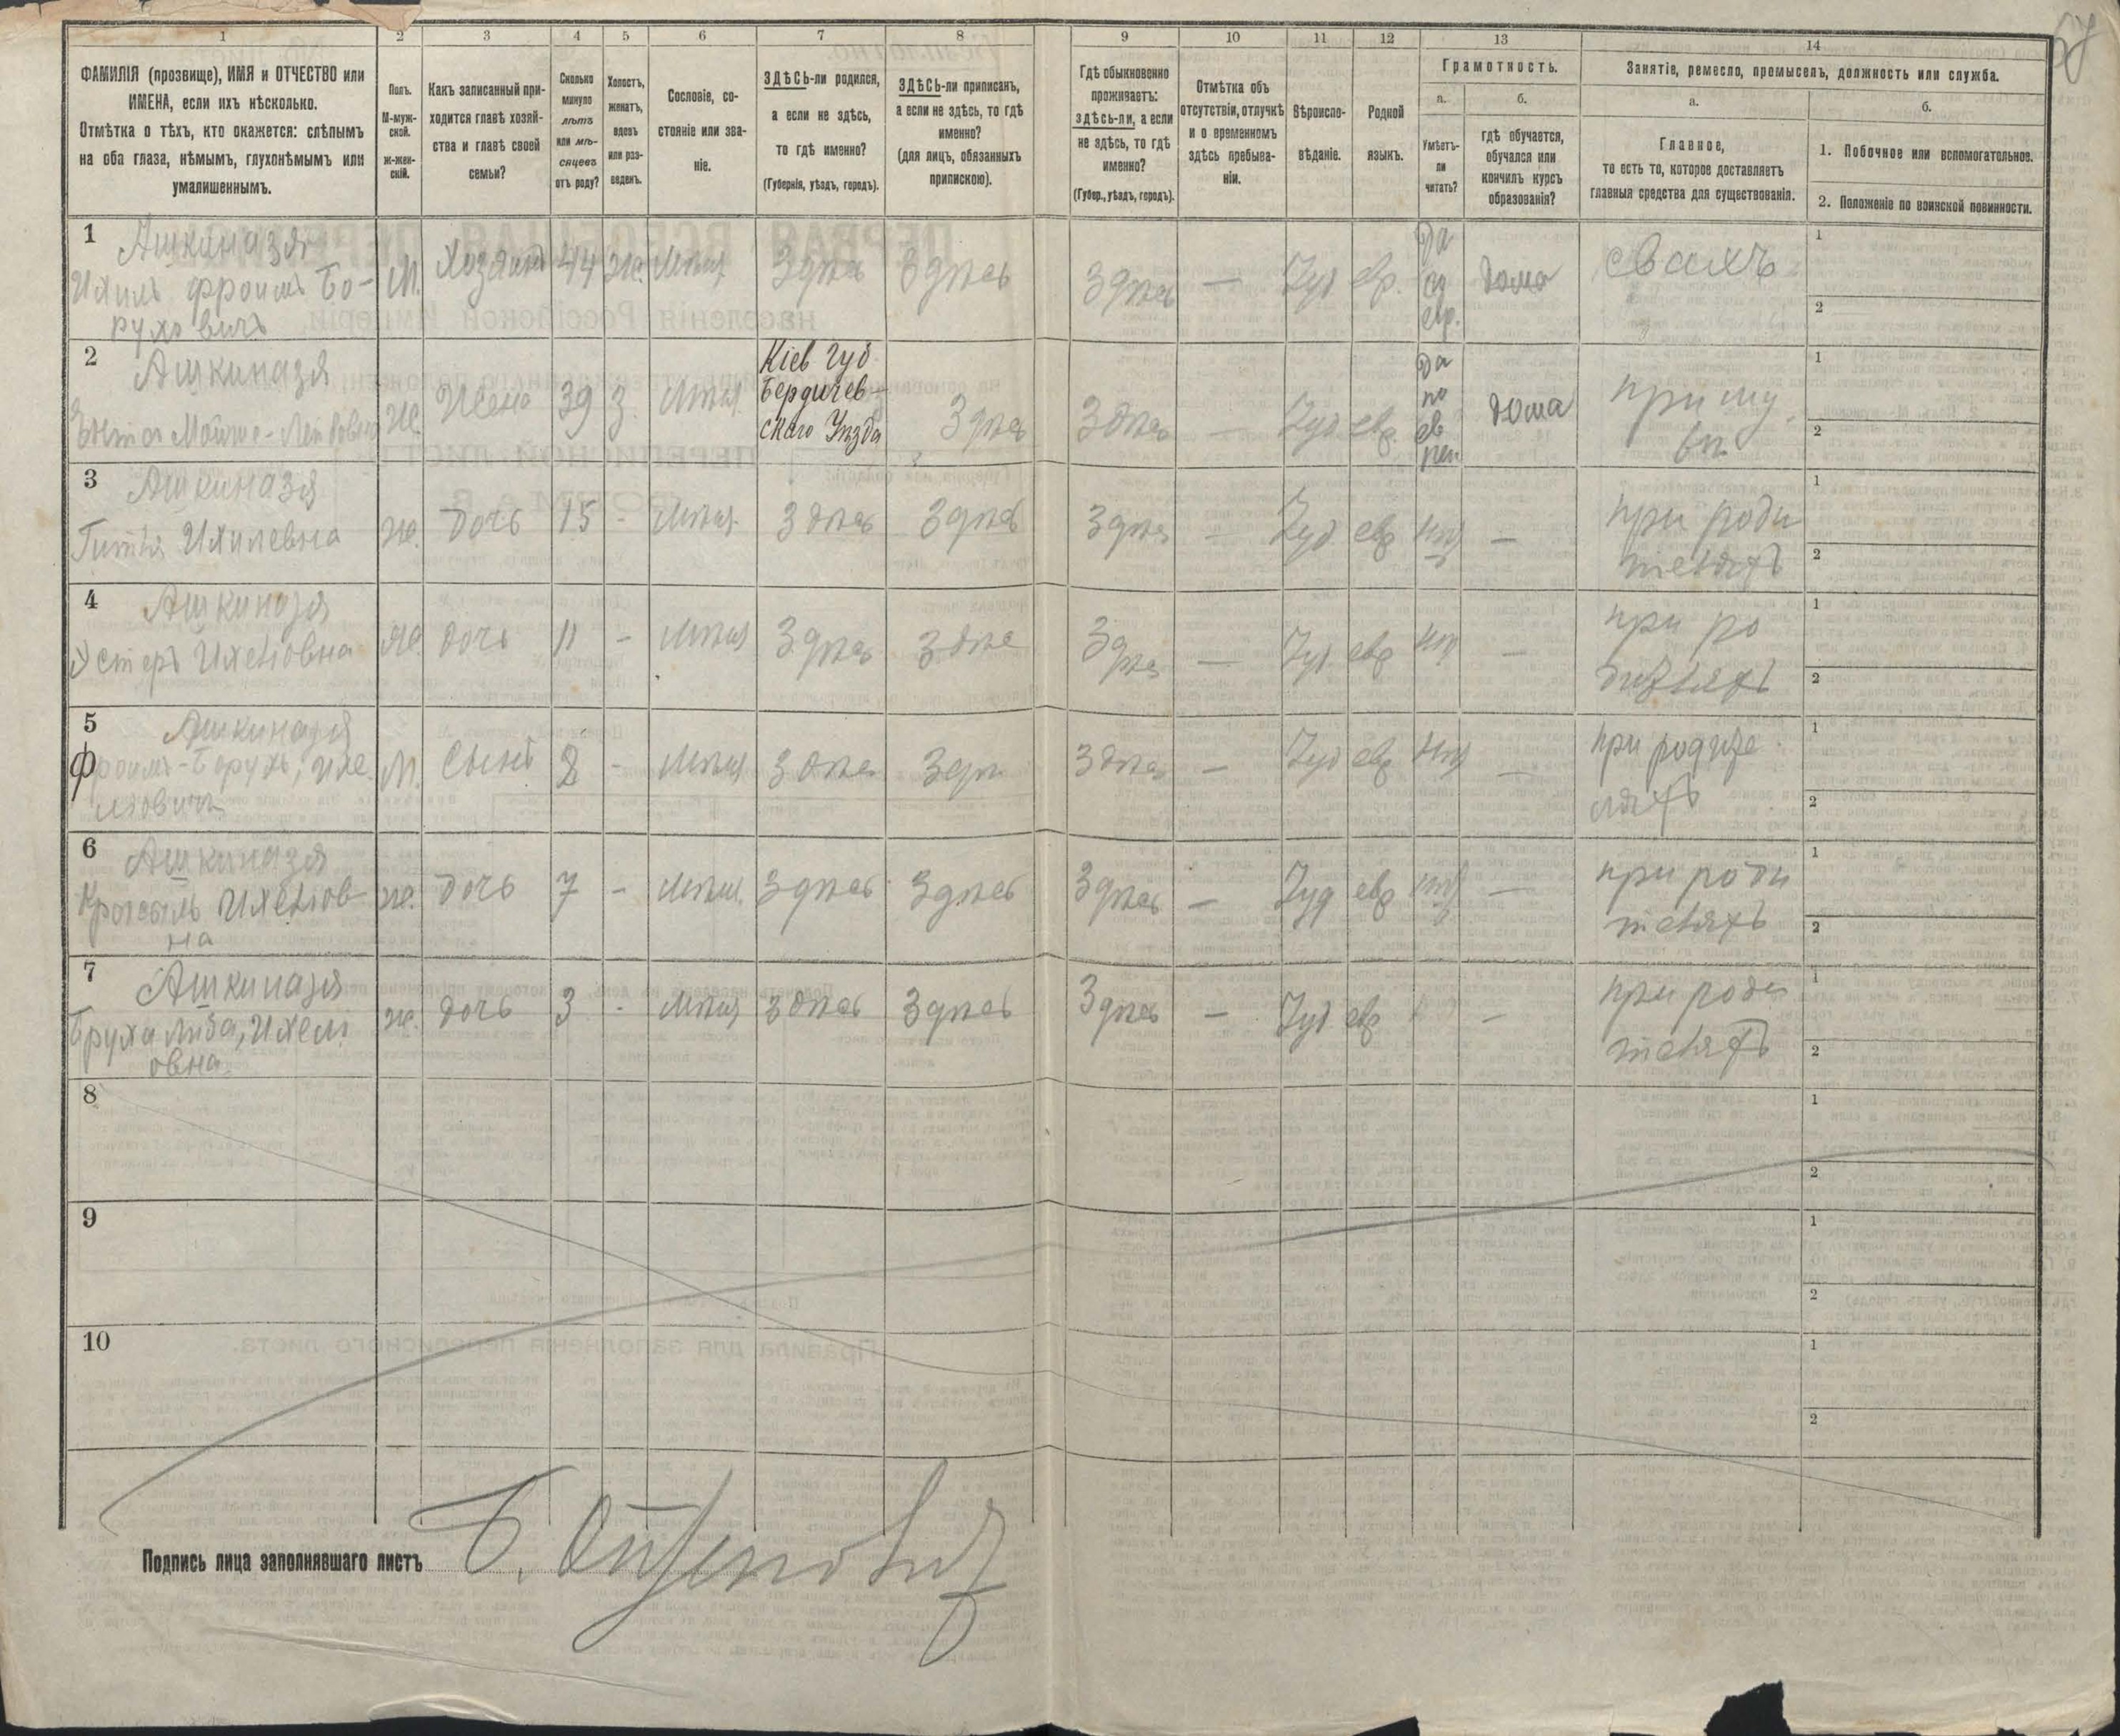 67
1 2 3 4 5 6 7 8 9 10 11 12 13 14
ФАМИЛІЯ (прозвище), ИМЯ и ОТЧЕСТВО или
ИМЕНА, если ихъ нѣсколько.
Отмѣтка о тѣхъ, кто окажется: слѣпымъ
на оба глаза, нѣмымъ, глухонѣмымъ или
умалишеннымъ.
Полъ.
М-муж-
ской.
ж-жен-
скій.
Какъ записанный при-
ходится главѣ хозяй-
ства и главѣ своей
семьи?
Сколько
минуло
лѣтъ
или мѣ-
сяцевъ
отъ роду?
Холостъ,
женатъ,
вдовъ
или раз-
веденъ.
Сословіе, со-
стояніе или зва-
ніе.
ЗДѢСЬ-ли родился,
а если не здѣсь,
то гдѣ именно?
(Губернія, уѣздъ, городъ).
ЗДѢСЬ-ли приписанъ,
а если не здѣсь, то гдѣ
именно?
(для лицъ, обязанныхъ
припискою).
Гдѣ обыкновенно
проживаетъ:
здѣсь-ли, а если
не здѣсь, то гдѣ
именно?
(Губер., уѣздъ, городъ).
Отмѣтка объ
отсутствіи, отлучкѣ
и о временномъ
здѣсь пребыва-
ніи.
Вѣроиспо-
вѣданіе.
Родной
языкъ.
Грамотность.
а.
Умѣетъ-
ли
читать?
б.
гдѣ обучается,
обучался или
кончилъ курсъ
образованія?
Занятіе, ремесло, промыселъ, должность или служба.
а.
Главное,
то есть то, которое доставляетъ
главныя средства для существованія.
б.
1. Побочное или вспомогательное.
2. Положеніе по воинской повинности.
1 Ашкиназя
Ихиль Фроимъ Бо-
руховичъ
М. Хозяинъ 44 Ж. Мѣщ. Здѣсь Здѣсь Здѣсь — Іуд евр. Да
евр.
дома
1
2
2 Ашкиназя
Мойше-Лейбовна
Ж. Жена 39 З. Мѣщ.
Кіев губ
Бердичев-
скаго Уѣзда
Здѣсь Здѣсь — Іуд евр. Да
по
ев
рей
дома
при му.
1
2
3 Ашкиназя
Гитля Ихилевна
ж. дочь 15 - Мѣщ. Здѣсь Здѣсь Здѣсь — Іуд евр нѣт —
при роди
теляхъ
1
2
4 Ашкиназя
Эстеръ Ихелювна
ж. дочь 11 - Мѣщ Здѣсь Здѣсь Здѣсь — Іуд. евр нѣт —
при ро
1
2
5 Ашкиназя
Фроимъ-Борухъ, Ихе
льовичъ
М. Сынъ 8 - Мѣщ Здѣсь Здѣсь Здѣсь — Іуд евр нѣт —
при родите
ляхъ
1
2
6 Ашкиназя
Ихелюв-
на
ж. дочь 7 - Мѣщ. Здѣсь Здѣсь Здѣсь — Іуд евр нѣт —
при роди
теляхъ
1
2
7 Ашкиназя
Бруха Либа, Ихелі
овна
ж. дочь 3 - Мѣщ Здѣсь Здѣсь Здѣсь — Іуд евр —
при роди
теляхъ
1
2
8
1
2
9
1
2
10
1
2
Подпись лица заполнявшаго листъ